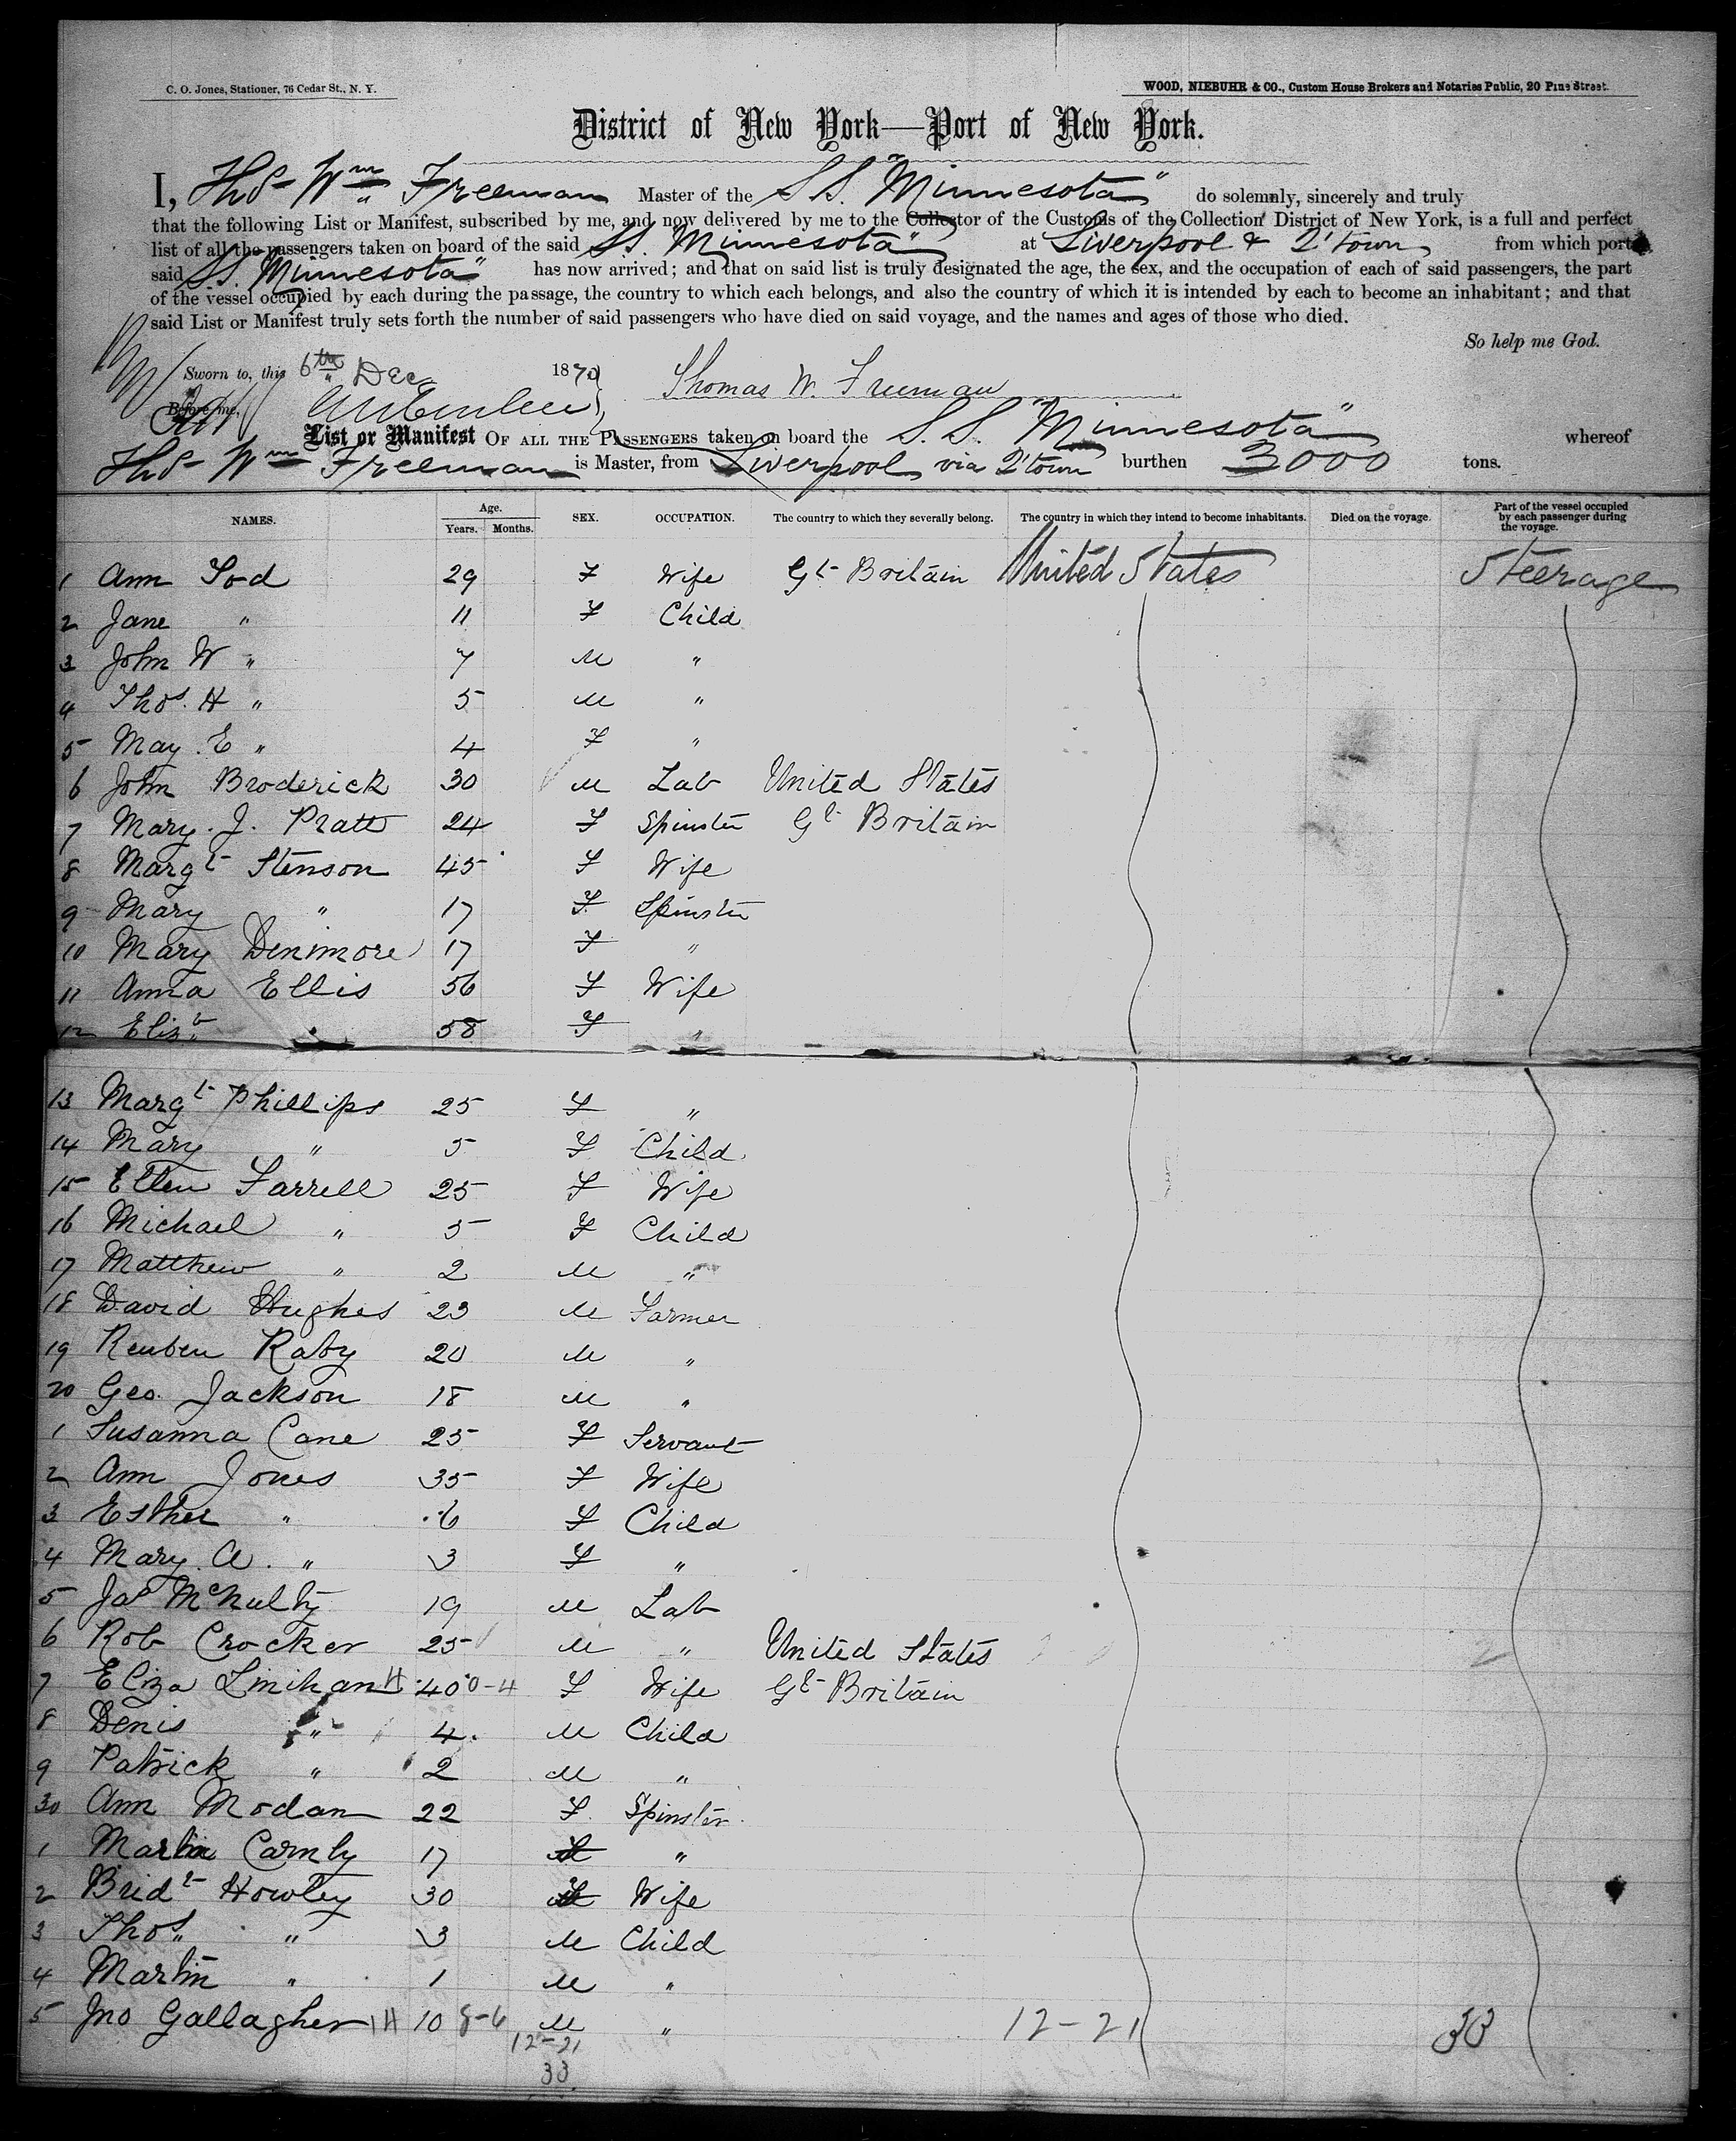 C. O. Jones, Stationer, 76 Cedar St., N. Y.
WOOD, NIEBUHR & CO., Custom House Brokers and Notaries Public, 20 Pine Street.
District of New York—Port of New York.
I, Thos Wm Freeman Master of the S.S. "Minnesota" do solemnly, sincerely and truly
that the following List or Manifest, subscribed by me, and now delivered by me to the Collector of the Customs of the Collection District of New York, is a full and perfect
list of all the passengers taken on board of the said S.S. "Minnesota" at Liverpool & Q'town from which port
said S.S. "Minnesota" has now arrived; and that on said list is truly designated the age, the sex, and the occupation of each of said passengers, the part
of the vessel occupied by each during the passage, the country to which each belongs, and also the country of which it is intended by each to become an inhabitant; and that
said List or Manifest truly sets forth the number of said passengers who have died on said voyage, and the names and ages of those who died.
So help me God.
Sworn to, this 6th Dec 1870
Thomas W. Freeman
Before me,
List or Manifest OF ALL THE PASSENGERS taken on board the S.S. "Minnesota" whereof
Thos Wm Freeman is Master, from Liverpool via Q'town burthen 3000 tons.
NAMES. Age. Years. Months. SEX. OCCUPATION. The country to which they severally belong. The country in which they intend to become inhabitants. Died on the voyage. Part of the vessel occupied by each passenger during the voyage.
1 Ann Tod 29 F Wife Gt Britain United States Steerage
2 Jane " 11 F Child
3 John W " 7 M "
4 Thos. H " 5 M "
5 May. E " 4 F "
6 John Broderick 30 M Lab United States
7 Mary. J. Pratt 24 F Spinster Gt Britain
8 Margt Stenson 45 F Wife
9 Mary " 17 F Spinster
10 Mary Denimore 17 F "
11 Anna Ellis 56 F Wife
12 Elizb " 58 F "
13 Margt Phillips 25 F "
14 Mary " 5 F Child
15 Ellen Farrell 25 F Wife
16 Michael " 5 F Child
17 Matthew " 2 M "
18 David Hughes 23 M Farmer
19 Reuben Raby 20 M "
20 Geo. Jackson 18 M "
1 Susanna Cane 25 F Servant
2 Ann Jones 35 F Wife
3 Esther " 6 F Child
4 Mary A. " 3 F "
5 Jas McNulty 19 M Lab
6 Rob Crocker 25 M " United States
7 Eliza Linihan H 40 0-4 F Wife Gt Britain
8 Denis " 4 M Child
9 Patrick " 2 M "
30 Ann Modan 22 F Spinster
1 Maria Carnly 17 "
2 Bridt Howley 30 F Wife
3 Thos " 3 M Child
4 Martin " 1 M "
5 Jno Gallagher 1H 10 8-6 M " 12-21 33
12-21
33